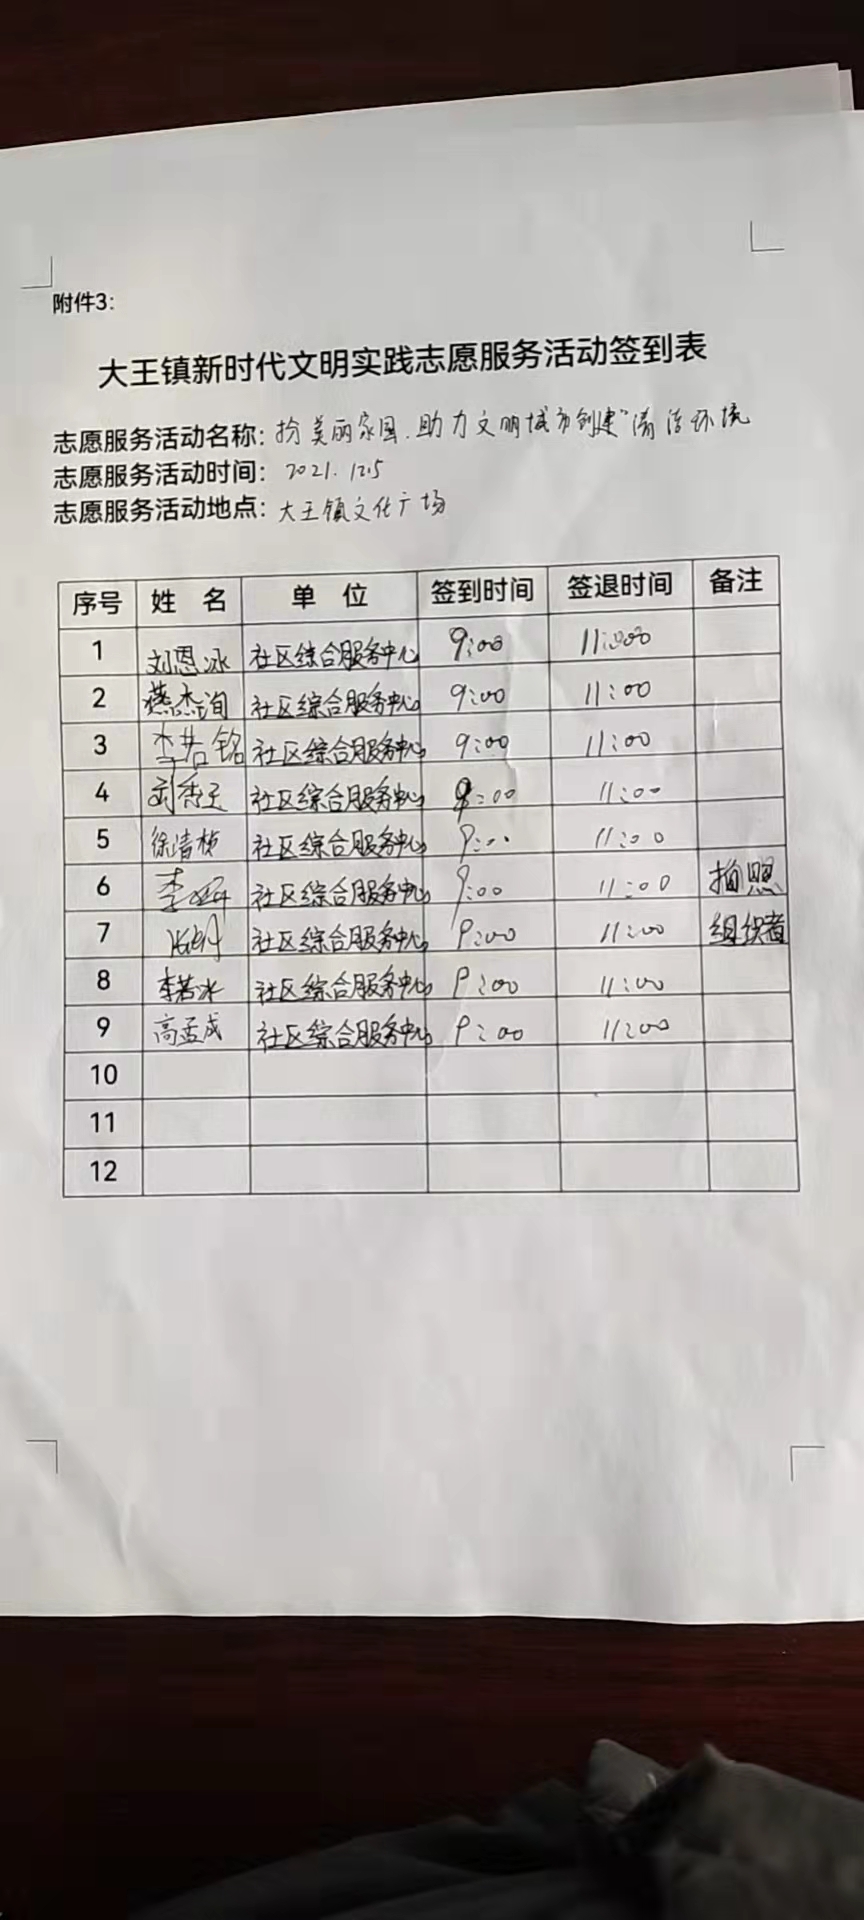 附件3:
大王镇新时代文明实践志愿服务活动签到表
志愿服务活动名称: 扮美丽家园.助力文明城市创建"清洁环境
志愿服务活动时间: 2021.12.5
志愿服务活动地点: 大王镇文化广场
序号 姓 名 单 位 签到时间 签退时间 备注
1 刘恩冰 社区综合服务中心 9:00 11:00
2 燕杰询 社区综合服务中心 9:00 11:00
3 李若铭 社区综合服务中心 9:00 11:00
4 社区综合服务中心 9:00 11:00
5 徐清桢 社区综合服务中心 9:00 11:00
6 李 社区综合服务中心 9:00 11:00 拍照
7 社区综合服务中心 9:00 11:00 组织者
8 李若冰 社区综合服务中心 9:00 11:00
9 高孟成 社区综合服务中心 9:00 11:00
10
11
12